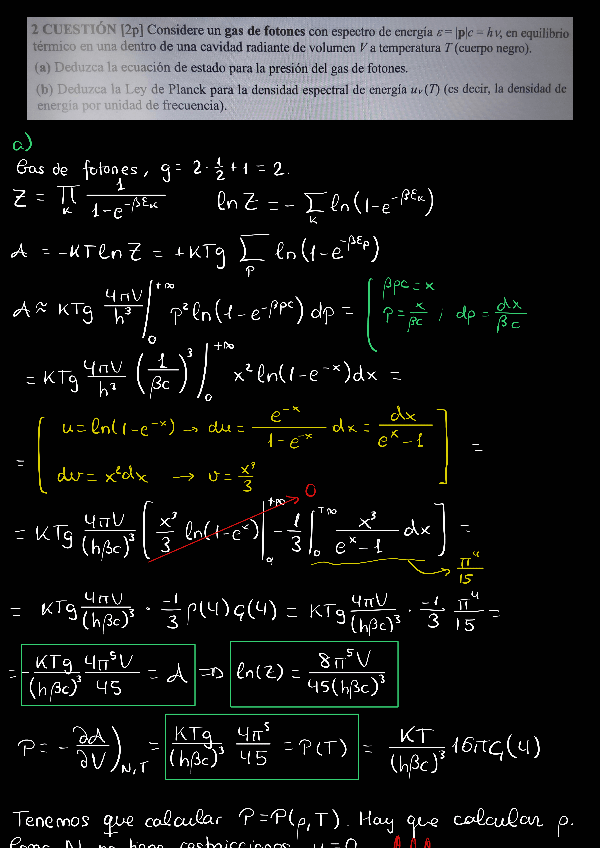 2 CUESTIÓN [2p] Considere un gas de fotones con espectro de energía ε = |p|c = hν, en equilibrio
térmico en una dentro de una cavidad radiante de volumen V a temperatura T (cuerpo negro).
(a) Deduzca la ecuación de estado para la presión del gas de fotones.
(b) Deduzca la Ley de Planck para la densidad espectral de energía uν(T) (es decir, la densidad de
energía por unidad de frecuencia).
a)
Gas de fotones, g = 2·1/2 + 1 = 2.
Z = ∏_K 1/(1-e^{-βε_K}) ln Z = - Σ_K ln(1-e^{-βε_K})
A = -KT ln Z = +KTg Σ_P ln(1-e^{-βε_p})
A ≈ KTg 4πV/h³ ∫_0^{+∞} p² ln(1-e^{-βpc}) dp = ( βpc = x
p = x/βc ; dp = dx/βc
= KTg 4πV/h³ (1/βc)³ ∫_0^{+∞} x² ln(1-e^{-x}) dx =
= [ u = ln(1-e^{-x}) → du = e^{-x}/(1-e^{-x}) dx = dx/(e^x-1)
dv = x²dx → v = x³/3 ] =
= KTg 4πV/(hβc)³ [ x³/3 ln(1-e^x) |_0^{+∞} - 1/3 ∫_0^{+∞} x³/(e^x-1) dx ] =
0
π⁴/15
= KTg 4πV/(hβc)³ · -1/3 Γ(4) ζ(4) = KTg 4πV/(hβc)³ · -1/3 π⁴/15 =
= -KTg/(hβc)³ 4π⁵V/45 = A ⇒ ln(Z) = 8π⁵V/45(hβc)³
P = -∂A/∂V)_{N,T} = KTg/(hβc)³ 4π⁵/45 = P(T) = KT/(hβc)³ 16πζ(4)
Tenemos que calcular P=P(ρ,T). Hay que calcular ρ.